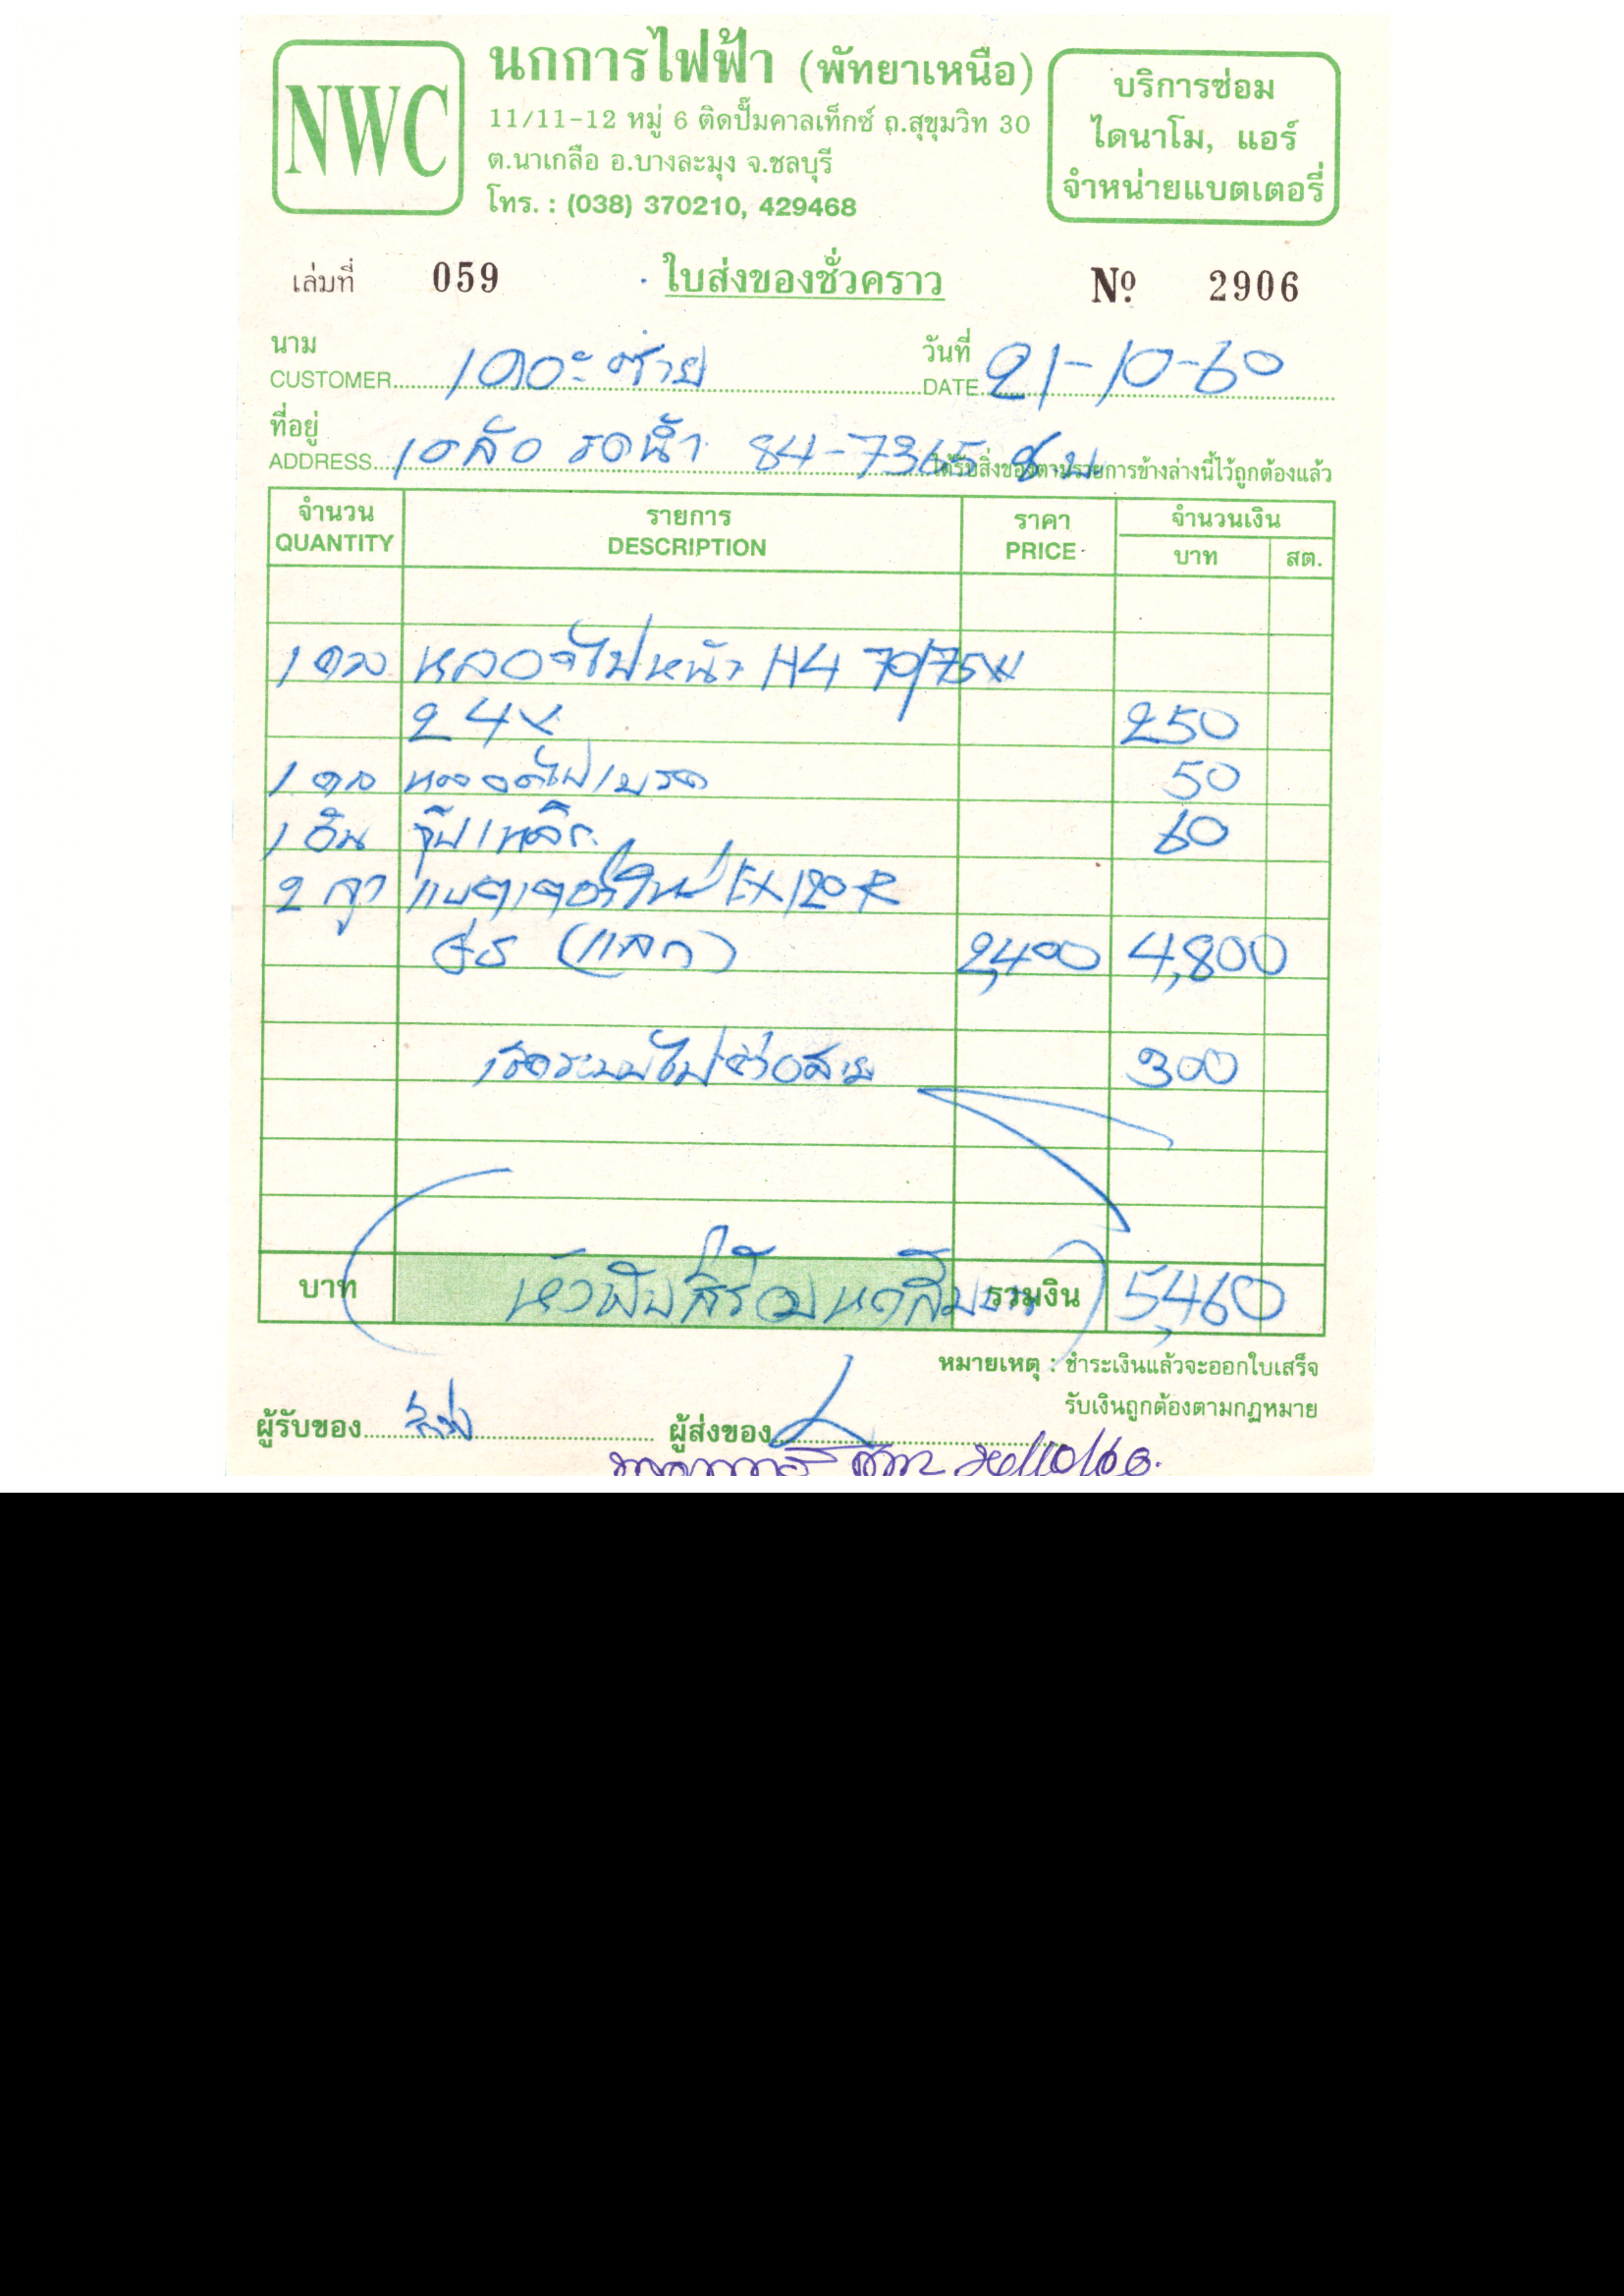 NWC
นกการไฟฟ้า (พัทยาเหนือ)
11/11-12 หมู่ 6 ติดปั๊มคาลเท็กซ์ ถ.สุขุมวิท 30
ต.นาเกลือ อ.บางละมุง จ.ชลบุรี
โทร. : (038) 370210, 429468
บริการซ่อม
ไดนาโม, แอร์
จำหน่ายแบตเตอรี่
เล่มที่ 059 ใบส่งของชั่วคราว Nº 2906
นาม
CUSTOMER
วันที่
DATE 21-10-60
ที่อยู่
ADDRESS รถน้ำ 84-7365 ช.บ
ได้รับสิ่งของตามรายการข้างล่างนี้ไว้ถูกต้องแล้ว
จำนวน รายการ ราคา จำนวนเงิน
QUANTITY DESCRIPTION PRICE บาท สต.
1 ดวง หลอดไฟหน้า H4 70/75W
24V 250
1 ดวง หลอดไฟเบรค 50
1 อัน 60
2 ลูก แบตเตอรี่ใหม่ EX120R
(แลก) 2,400 4,800
เช็คระบบไฟ 300
บาท ห้าพันสี่ร้อยหกสิบบาท รวมเงิน 5,460
หมายเหตุ : ชำระเงินแล้วจะออกใบเสร็จ
รับเงินถูกต้องตามกฎหมาย
ผู้รับของ ผู้ส่งของ